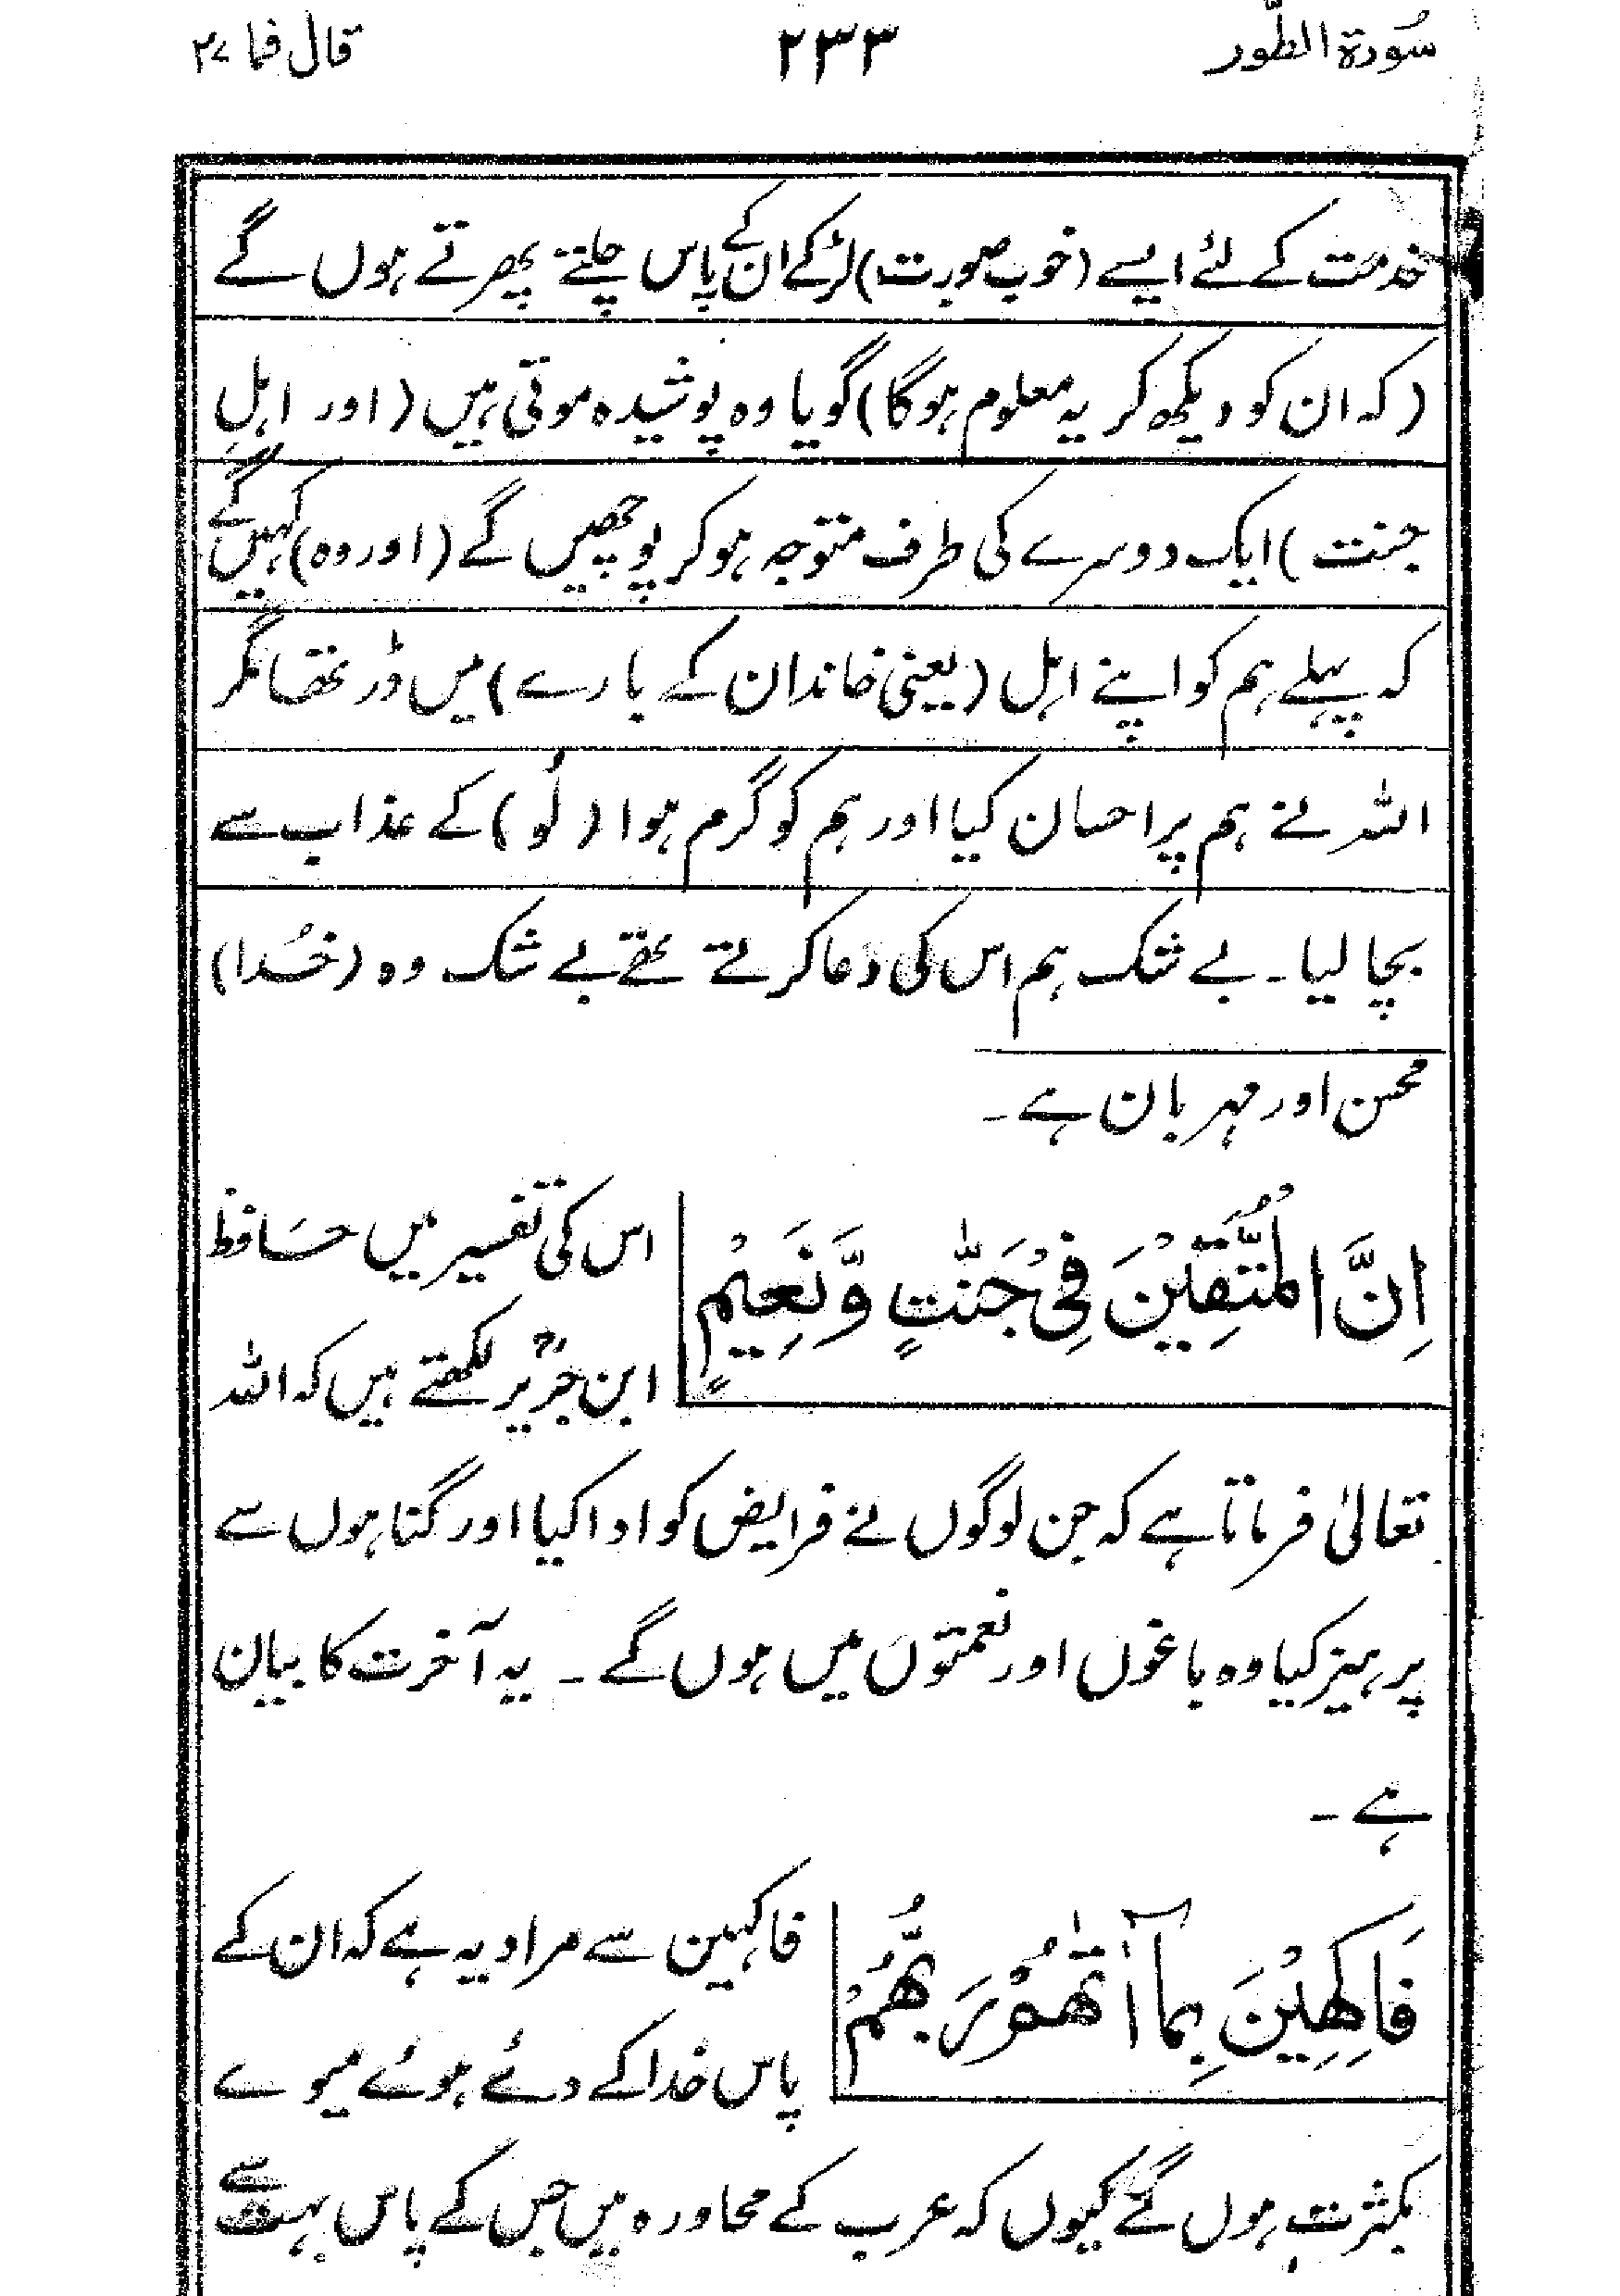 سُورة الطّور ۲۳۳ قال فما ۲۷
خدمت کے لئے ایسے (خوب صورت) لڑکے ان کے پاس چلتے پھرتے ہوں گے
(کہ ان کو دیکھ کر یہ معلوم ہوگا) گویا وہ پوشیدہ موتی ہیں (اور اہلِ
جنت) ایک دوسرے کی طرف متوجہ ہوکر پوچھیں گے (اور وہ) کہیں گے
کہ پہلے ہم کو اپنے اہل (یعنی خاندان کے بارے) میں ڈر تھا مگر
اللہ نے ہم پر احسان کیا اور ہم کو گرم ہوا (لُو) کے عذاب سے
بچا لیا۔ بے شک ہم اس کی دعا کرتے تھے بے شک وہ (خُدا)
محسن اور مہربان ہے۔
اِنَّ الْمُتَّقِيْنَ فِيْ جَنّٰتٍ وَّنَعِيْمٍ اس کی تفسیر میں حَافظ
ابن جریرؒ لکھتے ہیں کہ اللہ
تعالیٰ فرماتا ہے کہ جن لوگوں نے فرایض کو ادا کیا اور گناہوں سے
پرہیز کیا وہ باغوں اور نعمتوں میں ہوں گے۔ یہ آخرت کا بیان
ہے۔
فَاكِهِيْنَ بِمَآ اٰتٰهُمْ رَبُّهُمْ فاکہین سے مراد یہ ہے کہ ان کے
پاس خدا کے دئے ہوئے میوے
بکثرت ہوں گے کیوں کہ عرب کے محاورہ میں جس کے پاس بہت سے